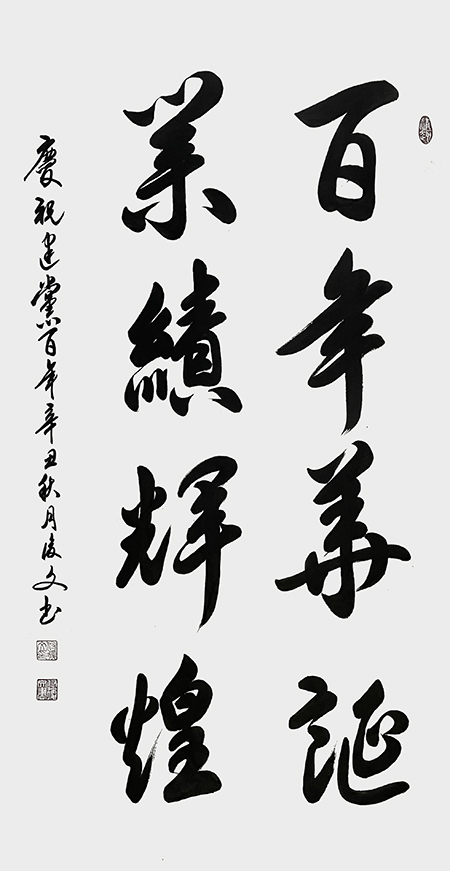 百年華誕
業績輝煌
慶祝建黨百年辛丑秋月俊文书